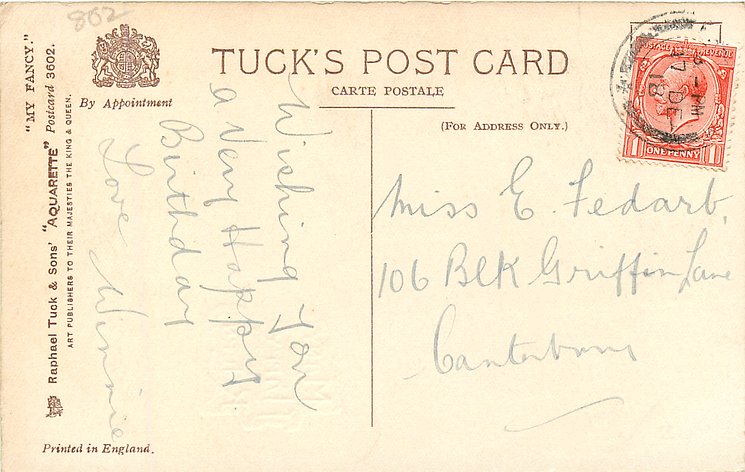 802
TUCK'S POST CARD
CARTE POSTALE
By Appointment
(FOR ADDRESS ONLY.)
"MY FANCY."
Raphael Tuck & Sons' "AQUARETTE" Postcard 3602.
ART PUBLISHERS TO THEIR MAJESTIES THE KING & QUEEN.
Wishing you
a Very Happy
Birthday
Love Winnie
Miss E. Fedarb,
106 Blk Griffin Lane
Canterbury
POSTAGE REVENUE
ONE PENNY
1 1
Printed in England.